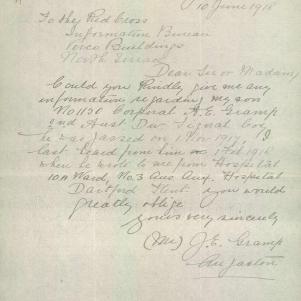 10 June 1918
To the Red Cross
Information Bureau
Verco Buildings
North Terrace
Dear Sir or Madam,
Could you Kindly give me any
information regarding my son
No 1150 Corporal A. E. Gramp
2nd Aust Div Signal Coy
he was gassed on Nov 1917, I
last heard from him on Feb 1918
when he wrote to me from Hospital
10A Ward, No. 3 Aus. Aux. Hospital
Dartford Kent. you would
greatly oblige
yours very sincerely
(Mr) J. E. Gramp
Angaston